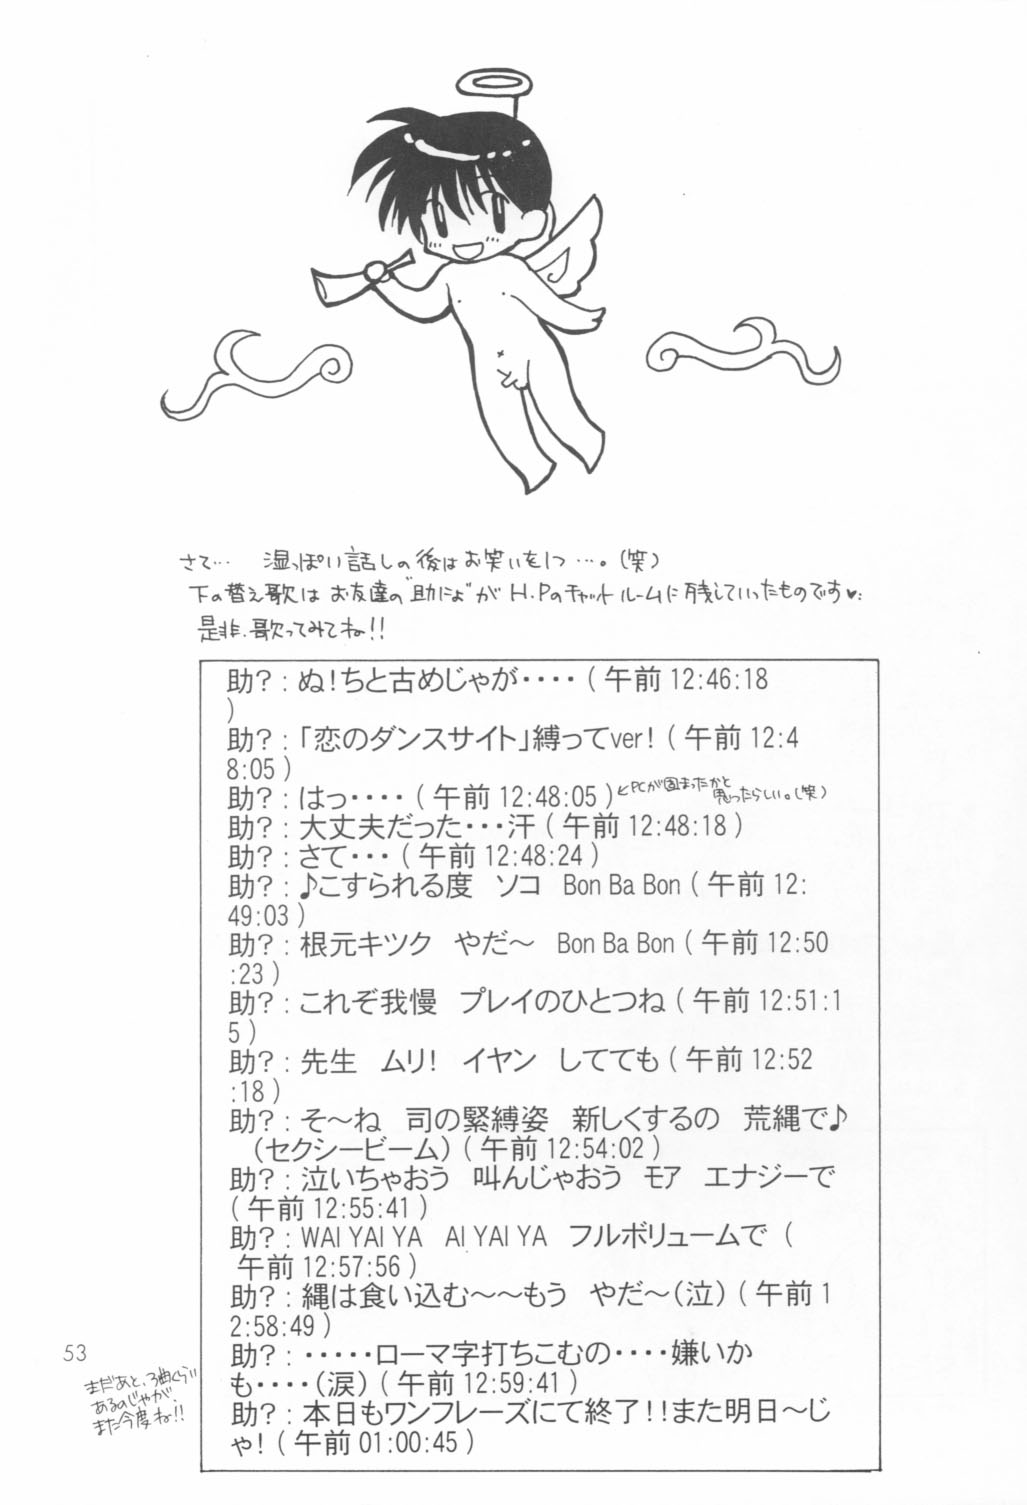 さて… 湿っぽい話しの後はお笑いを1つ…。(笑)
下の替え歌は お友達の"助によ"が H.Pのチャットルームに残していったものです♥
是非、歌ってみてね!!
助?:ぬ!ちと古めじゃが‥‥(午前12:46:18
)
助?:「恋のダンスサイト」縛ってver!(午前12:4
8:05)
助?:はっ‥‥(午前12:48:05)←PCが固まったかと
思ったらしい。(笑)
助?:大丈夫だった・・・汗(午前12:48:18)
助?:さて・・・(午前12:48:24)
助?:♪こすられる度 ソコ Bon Ba Bon(午前12:
49:03)
助?:根元キツク やだ~ Bon Ba Bon(午前12:50
:23)
助?:これぞ我慢 プレイのひとつね(午前12:51:1
5)
助?:先生 ムリ! イヤン してても(午前12:52
:18)
助?:そ~ね 司の緊縛姿 新しくするの 荒縄で♪
(セクシービーム)(午前12:54:02)
助?:泣いちゃおう 叫んじゃおう モア エナジーで
(午前12:55:41)
助?:WAI YAI YA AI YAI YA フルボリュームで (
午前12:57:56)
助?:縄は食い込む~~もう やだ~(泣)(午前1
2:58:49)
助?:・・・・・ローマ字打ちこむの‥‥嫌いか
も‥‥(涙)(午前12:59:41)
助?:本日もワンフレーズにて終了!!また明日~じ
ゃ!(午前01:00:45)
53
まだあと、3曲くらい
あるのじゃが、
また今度ね!!